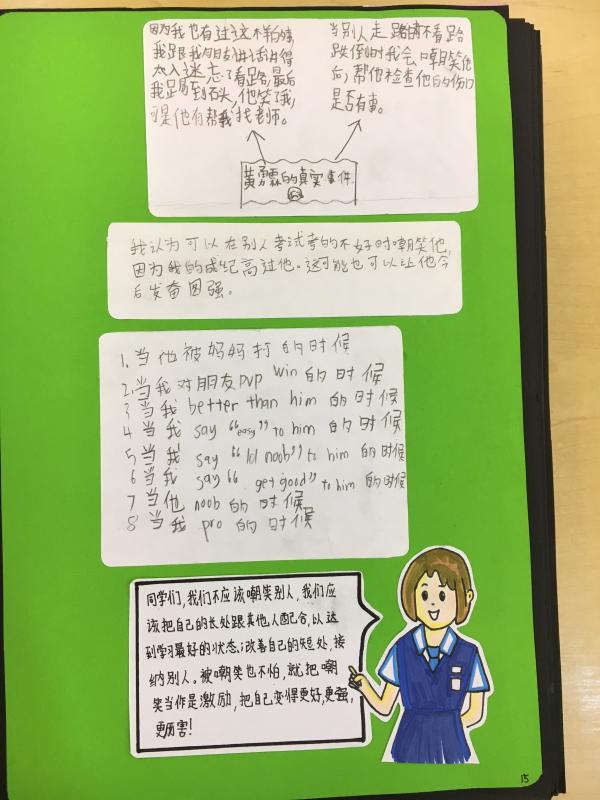 因为我也有过这不样的时候,
我跟我的朋友讲话讲得
太入迷忘了看路,最后
我踢到石头,他笑了我,
可是他有帮我找老师。
当别人走路请不看路
跌倒时我会嘲笑他
后,帮他检查他的伤口
是否有事。
黄勇霖的真实事件
我认为可以在别人考试考的不好时嘲笑他,
因为我的成纪高过他。这可能也可以让他今
后发奋图强。
1. 当他被妈妈打的时候
2. 当我对朋友pvp win的时候
3 当我 better than him 的时候
4 当我 say “easy” to him 的时候
5 当我 say “lol noob” to him 的时候
6 当我 say “get good” to him 的时候
7 当他 noob 的时候
8 当我 pro 的时候
同学们,我们不应该嘲笑别人,我们应
该把自己的长处跟其他人配合,以达
到学习最好的状态;改善自己的短处,接
纳别人。被嘲笑也不怕,就把嘲
笑当作是激励,把自己变得更好,更强,
更厉害!
15